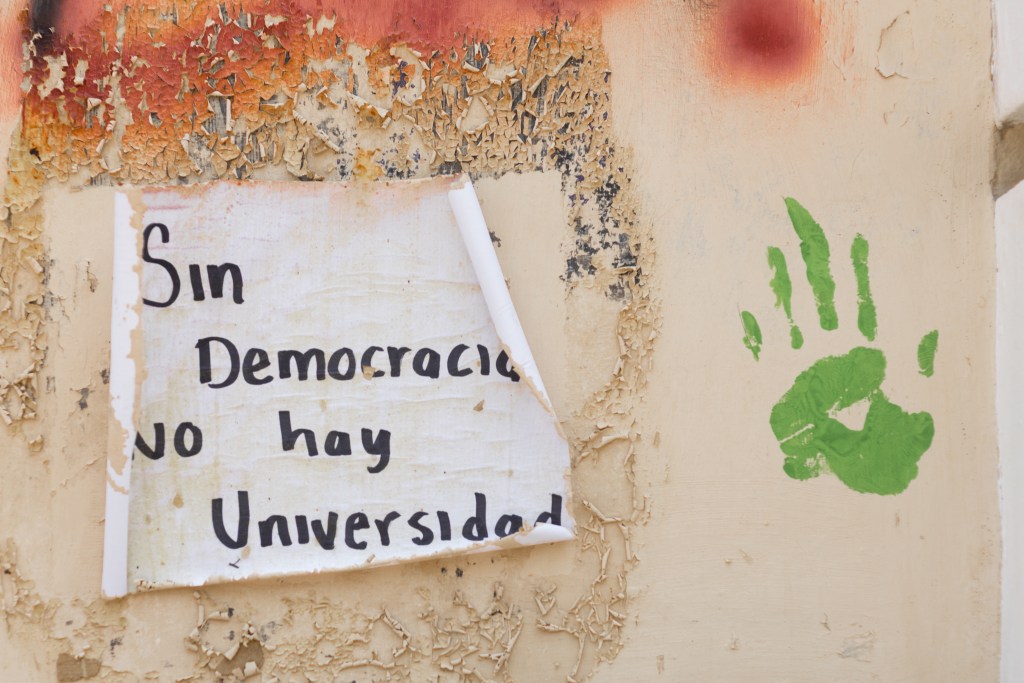 Sin
Democracia
No hay
Universidad